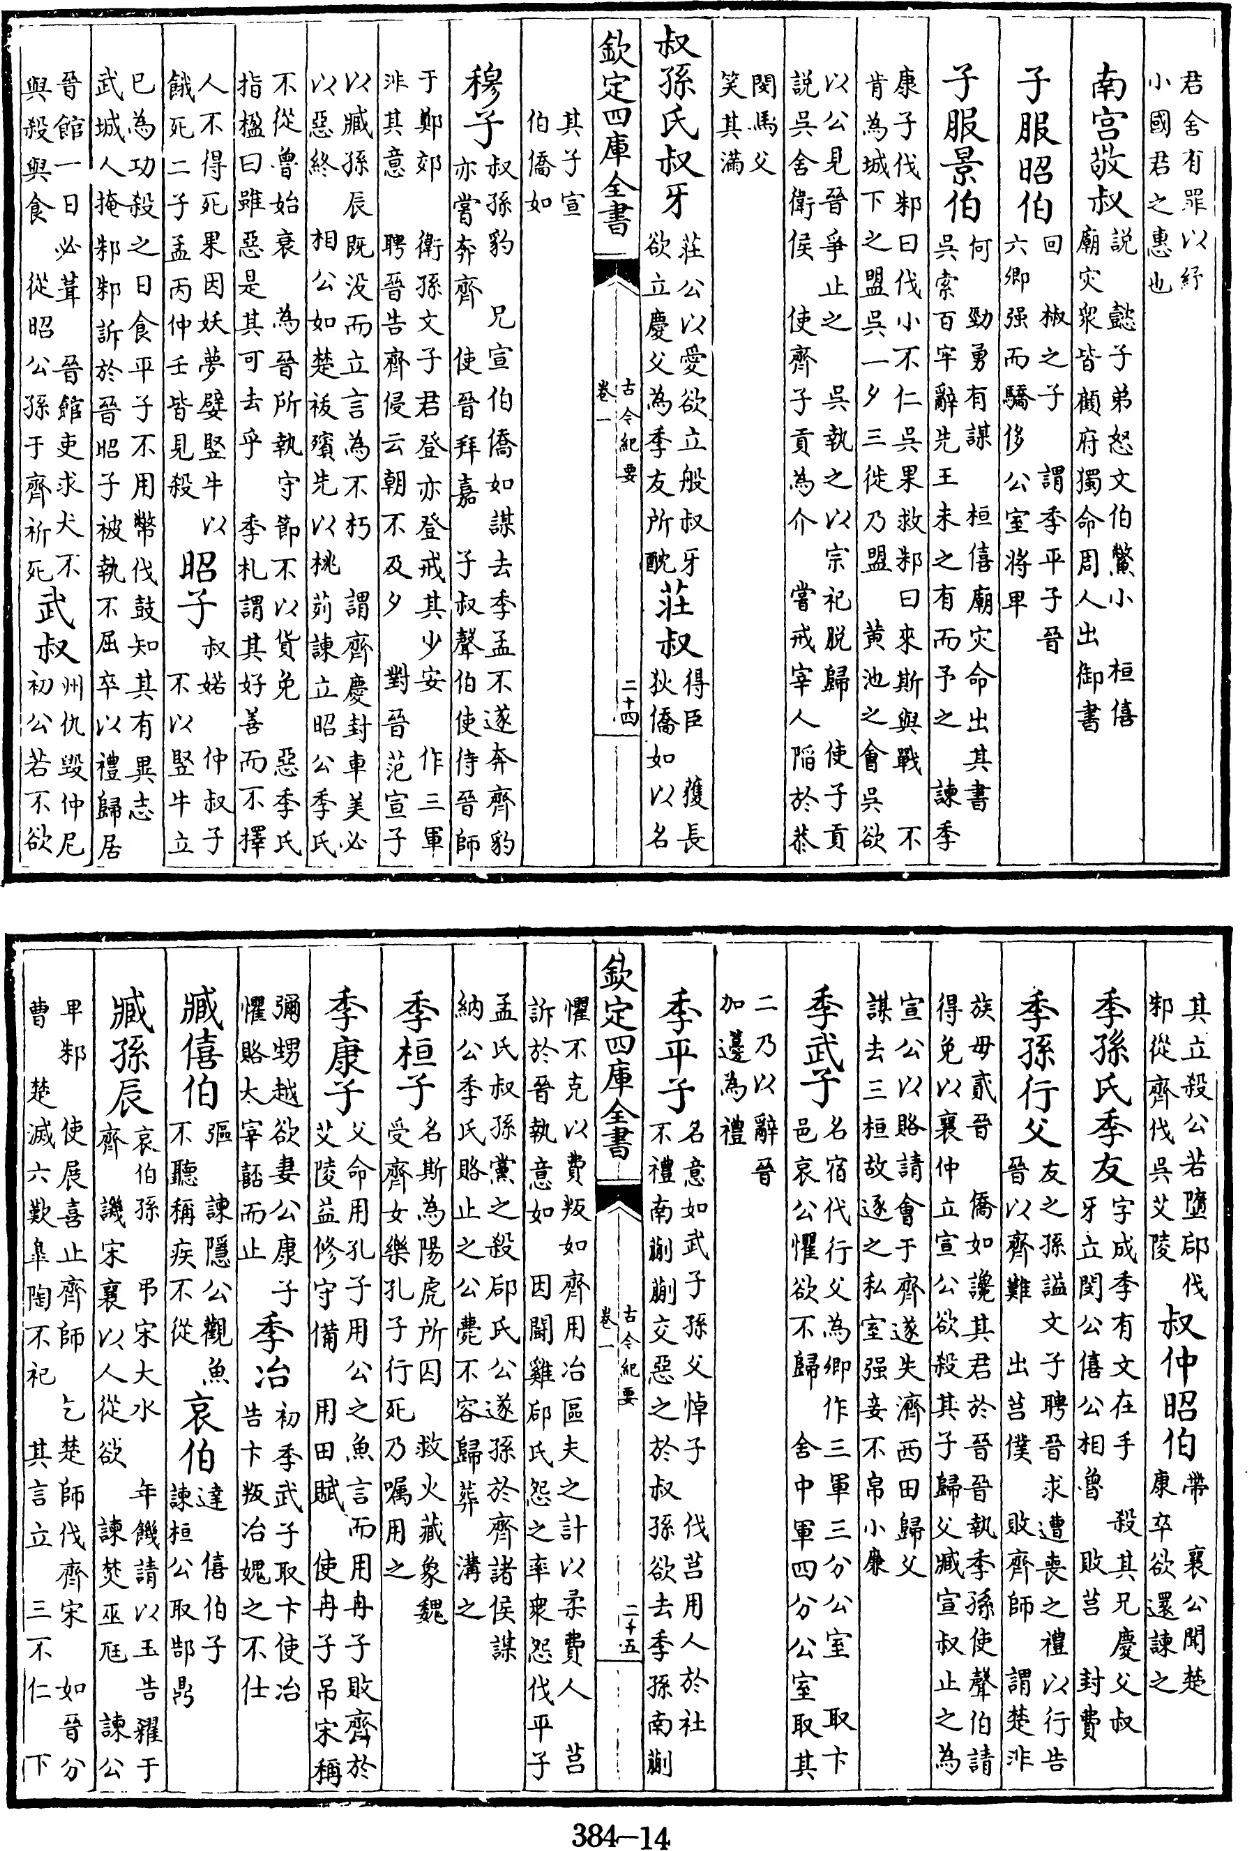 君舍有罪以紓
小國君之惠也
南宮敬叔 說 懿子弟怒文伯鱉小 桓僖
廟灾衆皆顧府獨命周人出御書
子服昭伯 回 椒之子 謂季平子晉
六卿强而驕侈公室將卑
子服景伯 何 勁勇有謀 桓僖廟灾命出其書
吳索百牢辭先王未之有而予之 諫季
康子伐邾曰伐小不仁吳果救邾曰來斯與戰 不
肯為城下之盟吳一夕三徙乃盟 黄池之會吳欲
以公見晉爭止之 吳執之以宗祀脱歸 使子貢
說吳舍衛侯 使齊子貢為介 嘗戒宰人陷於恭
閔馬父
笑其滿
叔孫氏叔牙 莊公以愛欲立般叔牙
欲立慶父為季友所酖
莊叔 得臣 獲長
狄僑如以名
欽定四庫全書
古今紀要
卷一
二十四
其子宣
伯僑如
穆子 叔孫豹 兄宣伯僑如謀去季孟不遂奔齊豹
亦嘗奔齊 使晉拜嘉 子叔聲伯使侍晉師
于鄭郊 衛孫文子君登亦登戒其少安 作三軍
非其意 聘晉告齊侵云朝不及夕 對晉范宣子
以臧孫辰既没而立言為不朽 謂齊慶封車美必
以惡終 相公如楚祓殯先以桃茢諫立昭公季氏
不從魯始衰 為晉所執守節不以貨免 惡季氏
指楹曰雖惡是其可去乎 季札謂其好善而不擇
人不得死果因妖夢嬖竪牛以
餓死二子孟丙仲壬皆見殺
昭子 叔婼 仲叔子
不以竪牛立
已為功殺之日食平子不用幣伐鼓知其有異志
武城人掩邾邾訴於晉昭子被執不屈卒以禮歸居
晉館一日必葺 晉館吏求犬不
與殺與食 從昭公孫于齊祈死
武叔 州仇毁仲尼
初公若不欲
其立殺公若墮郈伐
邾從齊伐吳艾陵
叔仲昭伯 帶 襄公聞楚
康卒欲還諫之
季孫氏季友 字成季有文在手 殺其兄慶父叔
牙立閔公僖公相魯 敗莒 封費
季孫行父 友之孫謚文子聘晉求遭喪之禮以行告
晉以齊難 出莒僕 敗齊師 謂楚非
族毋貳晉 僑如讒其君於晉晉執季孫使聲伯請
得免以襄仲立宣公欲殺其子歸父臧宣叔止之為
宣公以賂請會于齊遂失濟西田歸父
謀去三桓故逐之私室强妾不帛小廉
季武子 名宿代行父為卿作三軍三分公室 取卞
邑哀公懼欲不歸 舍中軍四分公室取其
二乃以辭晉
加籩為禮
季平子 名意如武子孫父悼子 伐莒用人於社
不禮南蒯蒯交惡之於叔孫欲去季孫南蒯
欽定四庫全書
古今紀要
卷一
二十五
懼不克以費叛如齊用冶區夫之計以柔費人 莒
訴於晉執意如 因鬭雞郈氏怨之率衆怨伐平子
孟氏叔孫黨之殺郈氏公遂孫於齊諸侯謀
納公季氏賂止之公薨不容歸葬 溝之
季桓子 名斯為陽虎所囚 救火藏象魏
受齊女樂孔子行死乃嘱用之
季康子 父命用孔子用公之魚言而用冉子敗齊於
艾陵益修守備 用田賦 使冉子吊宋稱
彌甥越欲妻公康子
懼賂太宰嚭而止
季冶 初季武子取卞使冶
告卞叛冶媿之不仕
臧僖伯 彄 諫隱公觀魚
不聽稱疾不從
哀伯 達 僖伯子
諫桓公取郜鼎
臧孫辰 哀伯孫 吊宋大水 年饑請以玉告糴于
齊 譏宋襄以人從欲 諫焚巫尫 諫公
卑邾 使展喜止齊師 乞楚師伐齊宋 如晉分
曹 楚滅六歎臯陶不祀 其言立 三不仁 下
384-14